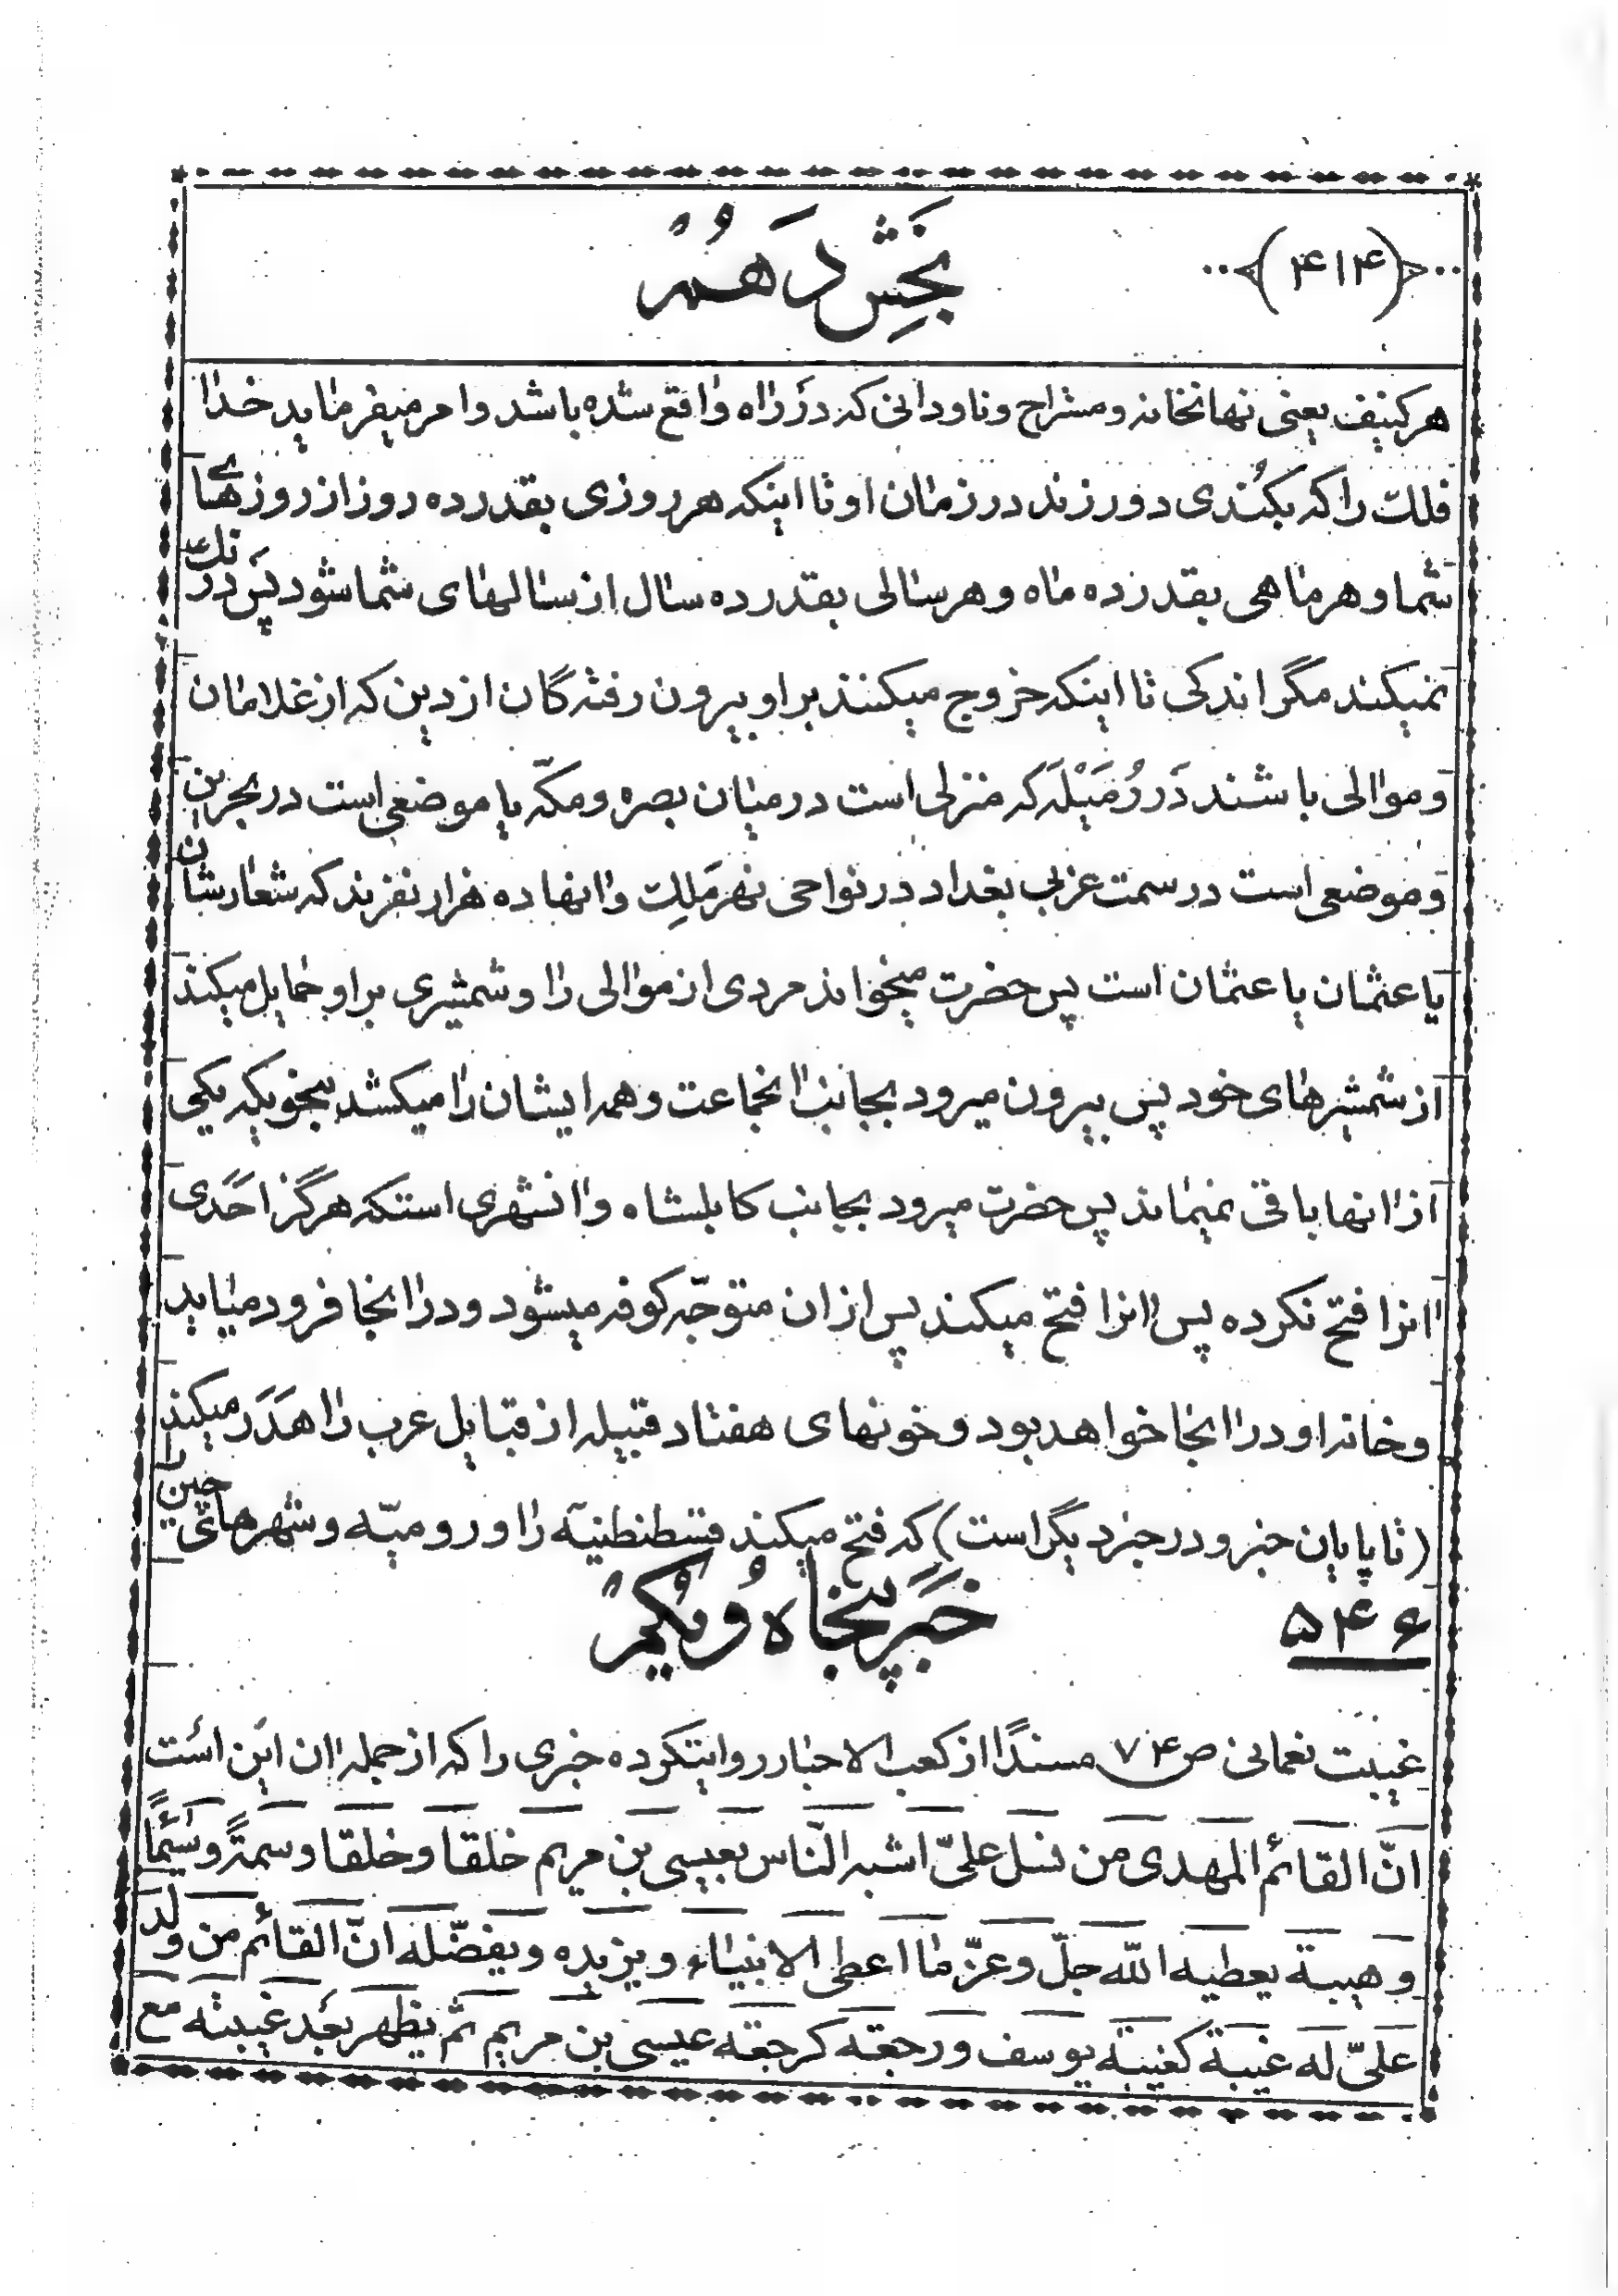 ﴿۴۱۴﴾ بَخشِ دَهُم
هر کنیف یعنی نهانخانه و مستراح و ناودانی که در راه واقع شده باشد و امر میفرماید خدا
فلک را که بکُندی دور زند در زمان او تا اینکه هر روزی بقدر ده روز از روزهای
شما و هر ماهی بقدر ده ماه و هر سالی بقدر ده سال از سالهای شما شود پس درنك
نمیکند مگر اندکی تا اینکه خروج میکنند بر او بیرون رفته گان از دین که از غلامان
و موالی باشند در رُمَیْلَه که منزلی است در میان بصره و مکّه یا موضعی است در بحرین
و موضعی است در سمت غربی بغداد در نواحی نهر مَلِك و انها ده هزار نفرند که شعارشان
یا عثمان یا عثمان است پس حضرت میخواند مردی از موالی را و شمشیری بر او حمایل میکند
از شمشیرهای خود پس بیرون میرود بجانب انجماعت و همه ایشان را میکشد بنحویکه یکی
از انها باقی نمیماند پس حضرت میرود بجانب کابلشاه و انشهری استکه هرگز احَدی
انرا فتح نکرده پس انرا فتح میکند پس از ان متوجّه کوفه میشود و در انجا فرود میاید
و خانه او در انجا خواهد بود و خونهای هفتاد قبیله از قبایل عرب را هَدَر میکند
(تا پایان خبر و در خبر دیگر است) که فتح میکند قسطنطنیّه را و رومیّه و شهرهای چین را
۵۴۶ خَبَر پنجاه وُ یکُم
غیبت نعمانی ص ۷۴ مسندًا از کعب الاحبار روایتکرده خبری را که از جمله ان این است
انّ القائم المهدی من نسل علیّ اشبه النّاس بعیسی بن مریم خلقا و خلقا و سمةً و سیمًا
و هیبة یعطیه اللّه جلّ و عزّ ما اعطی الانبیاء و یزیده و یفضّله انّ القائم من ولد
علیّ له غیبة کغیبة یوسف و رجعة کرجعة عیسی بن مریم ثمّ یظهر بعد غیبته مع